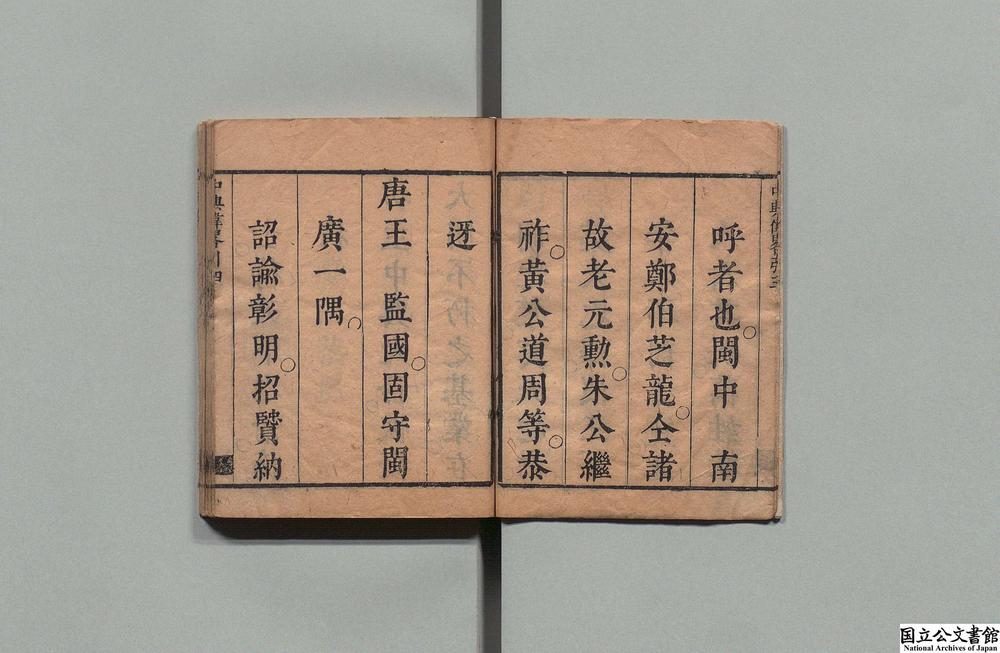 呼者也○閩中南
安鄭伯芝龍○仝諸
故老元勲○朱公繼
祚○黃公道周等○恭
迓
唐王監國○固守閩
廣一隅○
詔諭彰明○招賢納
国立公文書館
National Archives of Japan